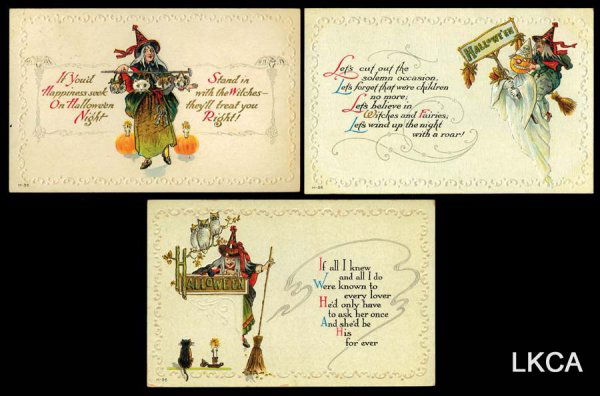 If you'd
Happiness seek
On Hallowe'en
Night
Stand in
with the Witches—
they'll treat you
Right!
H-56
HALLOWE'EN
Let's cut out the
solemn occasion,
Let's forget that we're children
no more;
Let's believe in
Witches and Fairies,
Let's wind up the night
with a roar!
H-56
HALLOWE'EN
If all I knew
and all I do
Were known to
every lover
He'd only have
to ask her once
And she'd be
His
for ever
H-56
LKCA